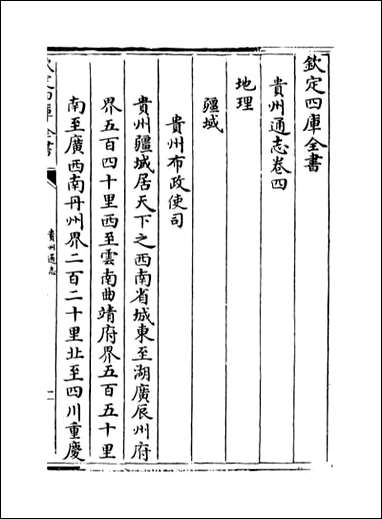 欽定四庫全書
貴州通志卷四
地理
疆域
貴州布政使司
貴州疆域居天下之西南省城東至湖廣辰州府
界五百四十里西至雲南曲靖府界五百五十里
南至廣西南丹州界二百二十里北至四川重慶
欽定四庫全書
貴州通志